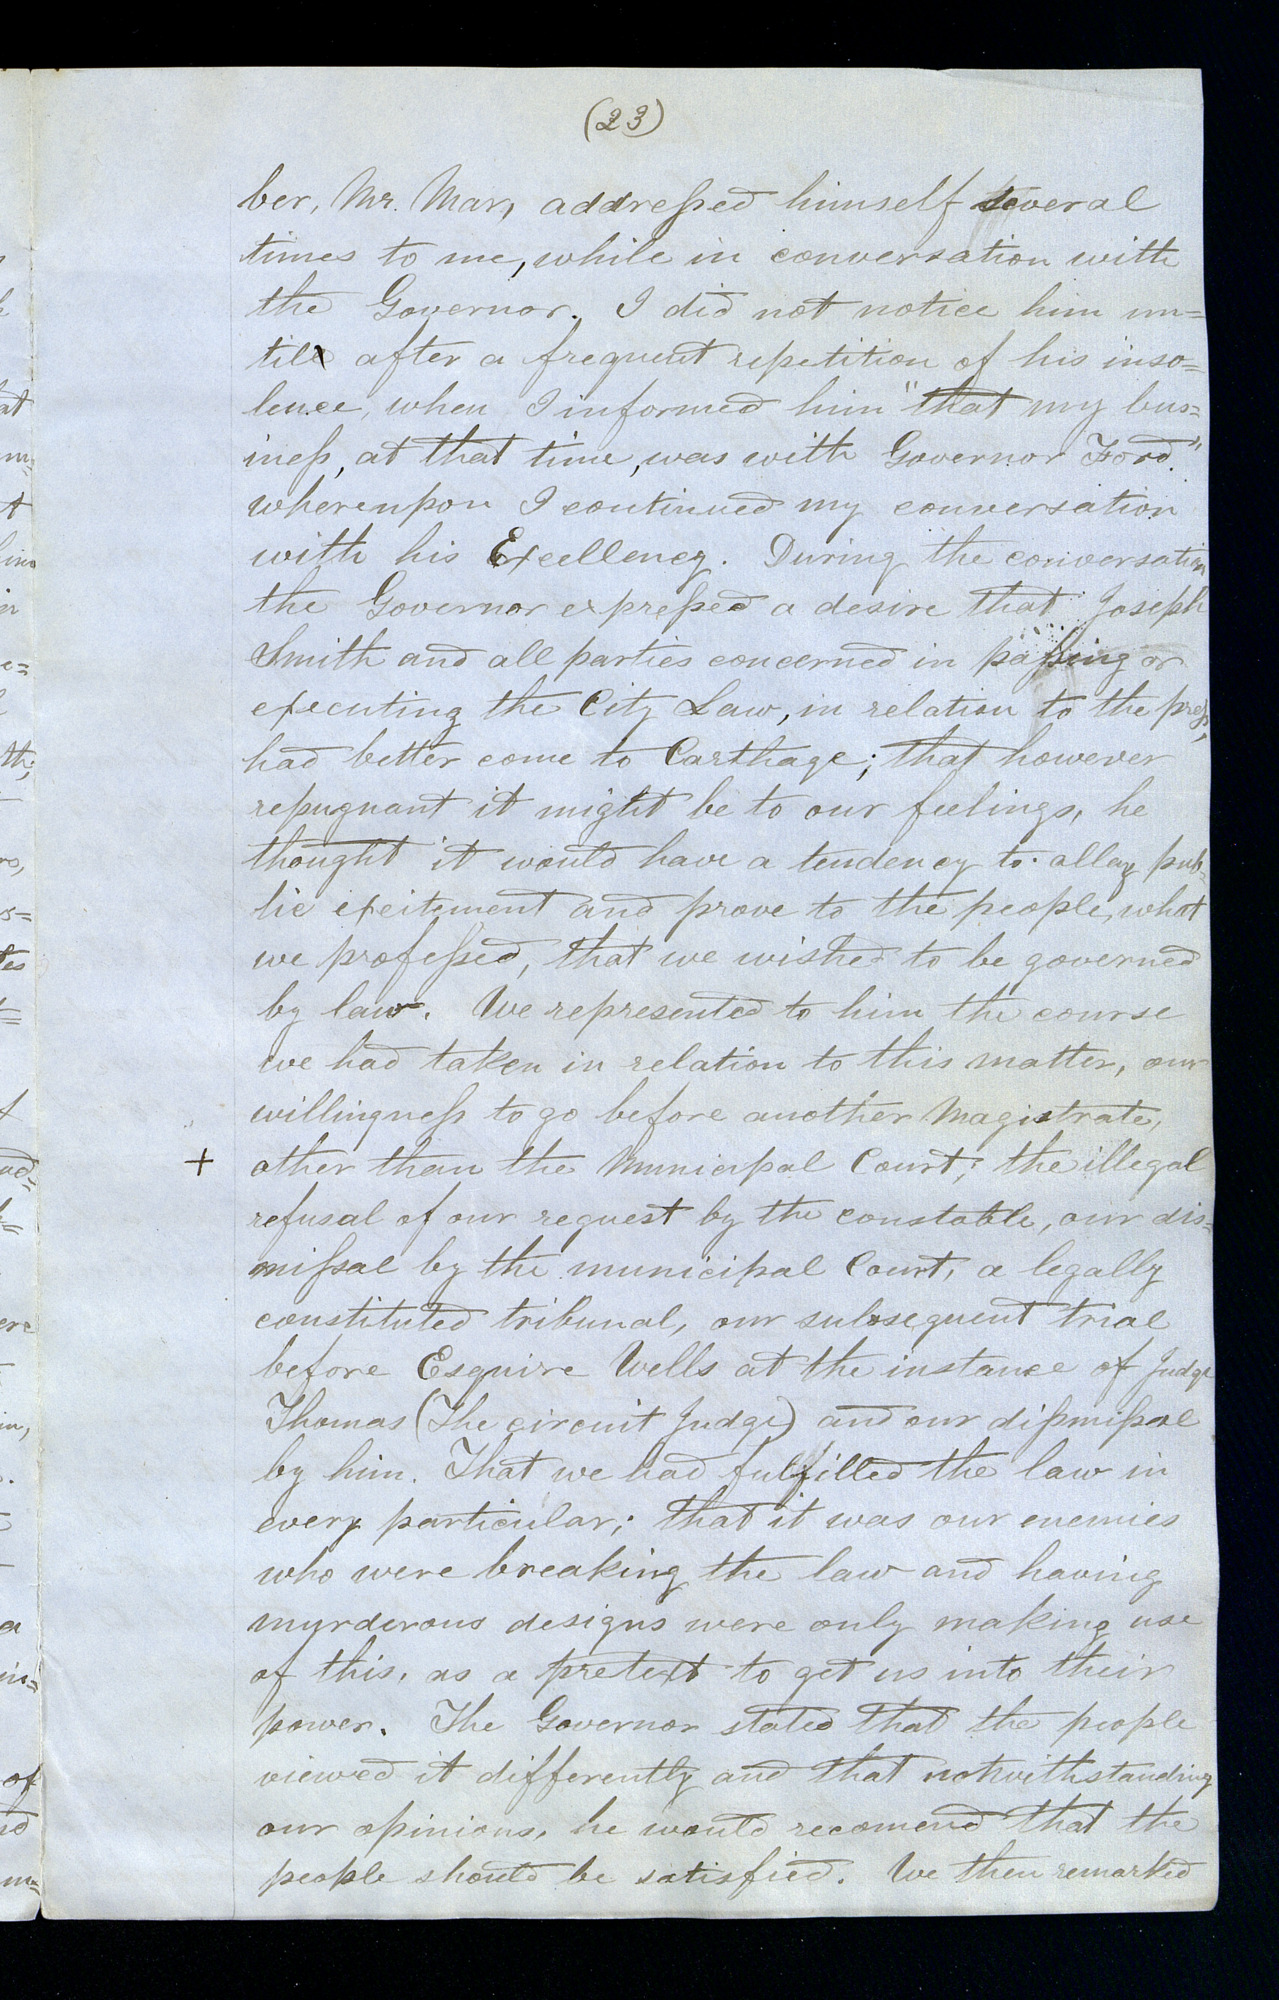 (23)
ber, Mr. Marr, addressed himself several
times to me, while in conversation with
the Governor. I did not notice him un=
til after a frequent repetition of his inso=
lence, when I informed him "that my bus=
iness, at that time, was with Governor Ford."
whereupon I continued my conversation
with his Excellency. During the conversation
the Governor expressed a desire that Joseph
Smith and all parties concerned in passing or
executing the City Law, in relation to the press,
had better come to Carthage; that however
repugnant it might be to our feelings, he
thought it would have a tendency to allay pub=
lic excitement and prove to the people, what
we professed, that we wished to be governed
by law. We represented to him the course
we had taken in relation to this matter, our
willingness to go before another Magistrate,
+ other than the Municipal Court; the illegal
refusal of our request by the constable, our dis=
missal by the municipal Court, a legally
constituted tribunal, our subsequent trial
before Esquire Wells at the instance of Judge
Thomas (The circuit Judge) and our dismissal
by him. That we had fulfilled the law in
every particular; that it was our enemies
who were breaking the law and having
murderous designs were only making use
of this, as a pretext to get us into their
power. The Governor stated that the people
viewed it differently and that notwithstanding
our opinions, he would recomend that the
people should be satisfied. We then remarked